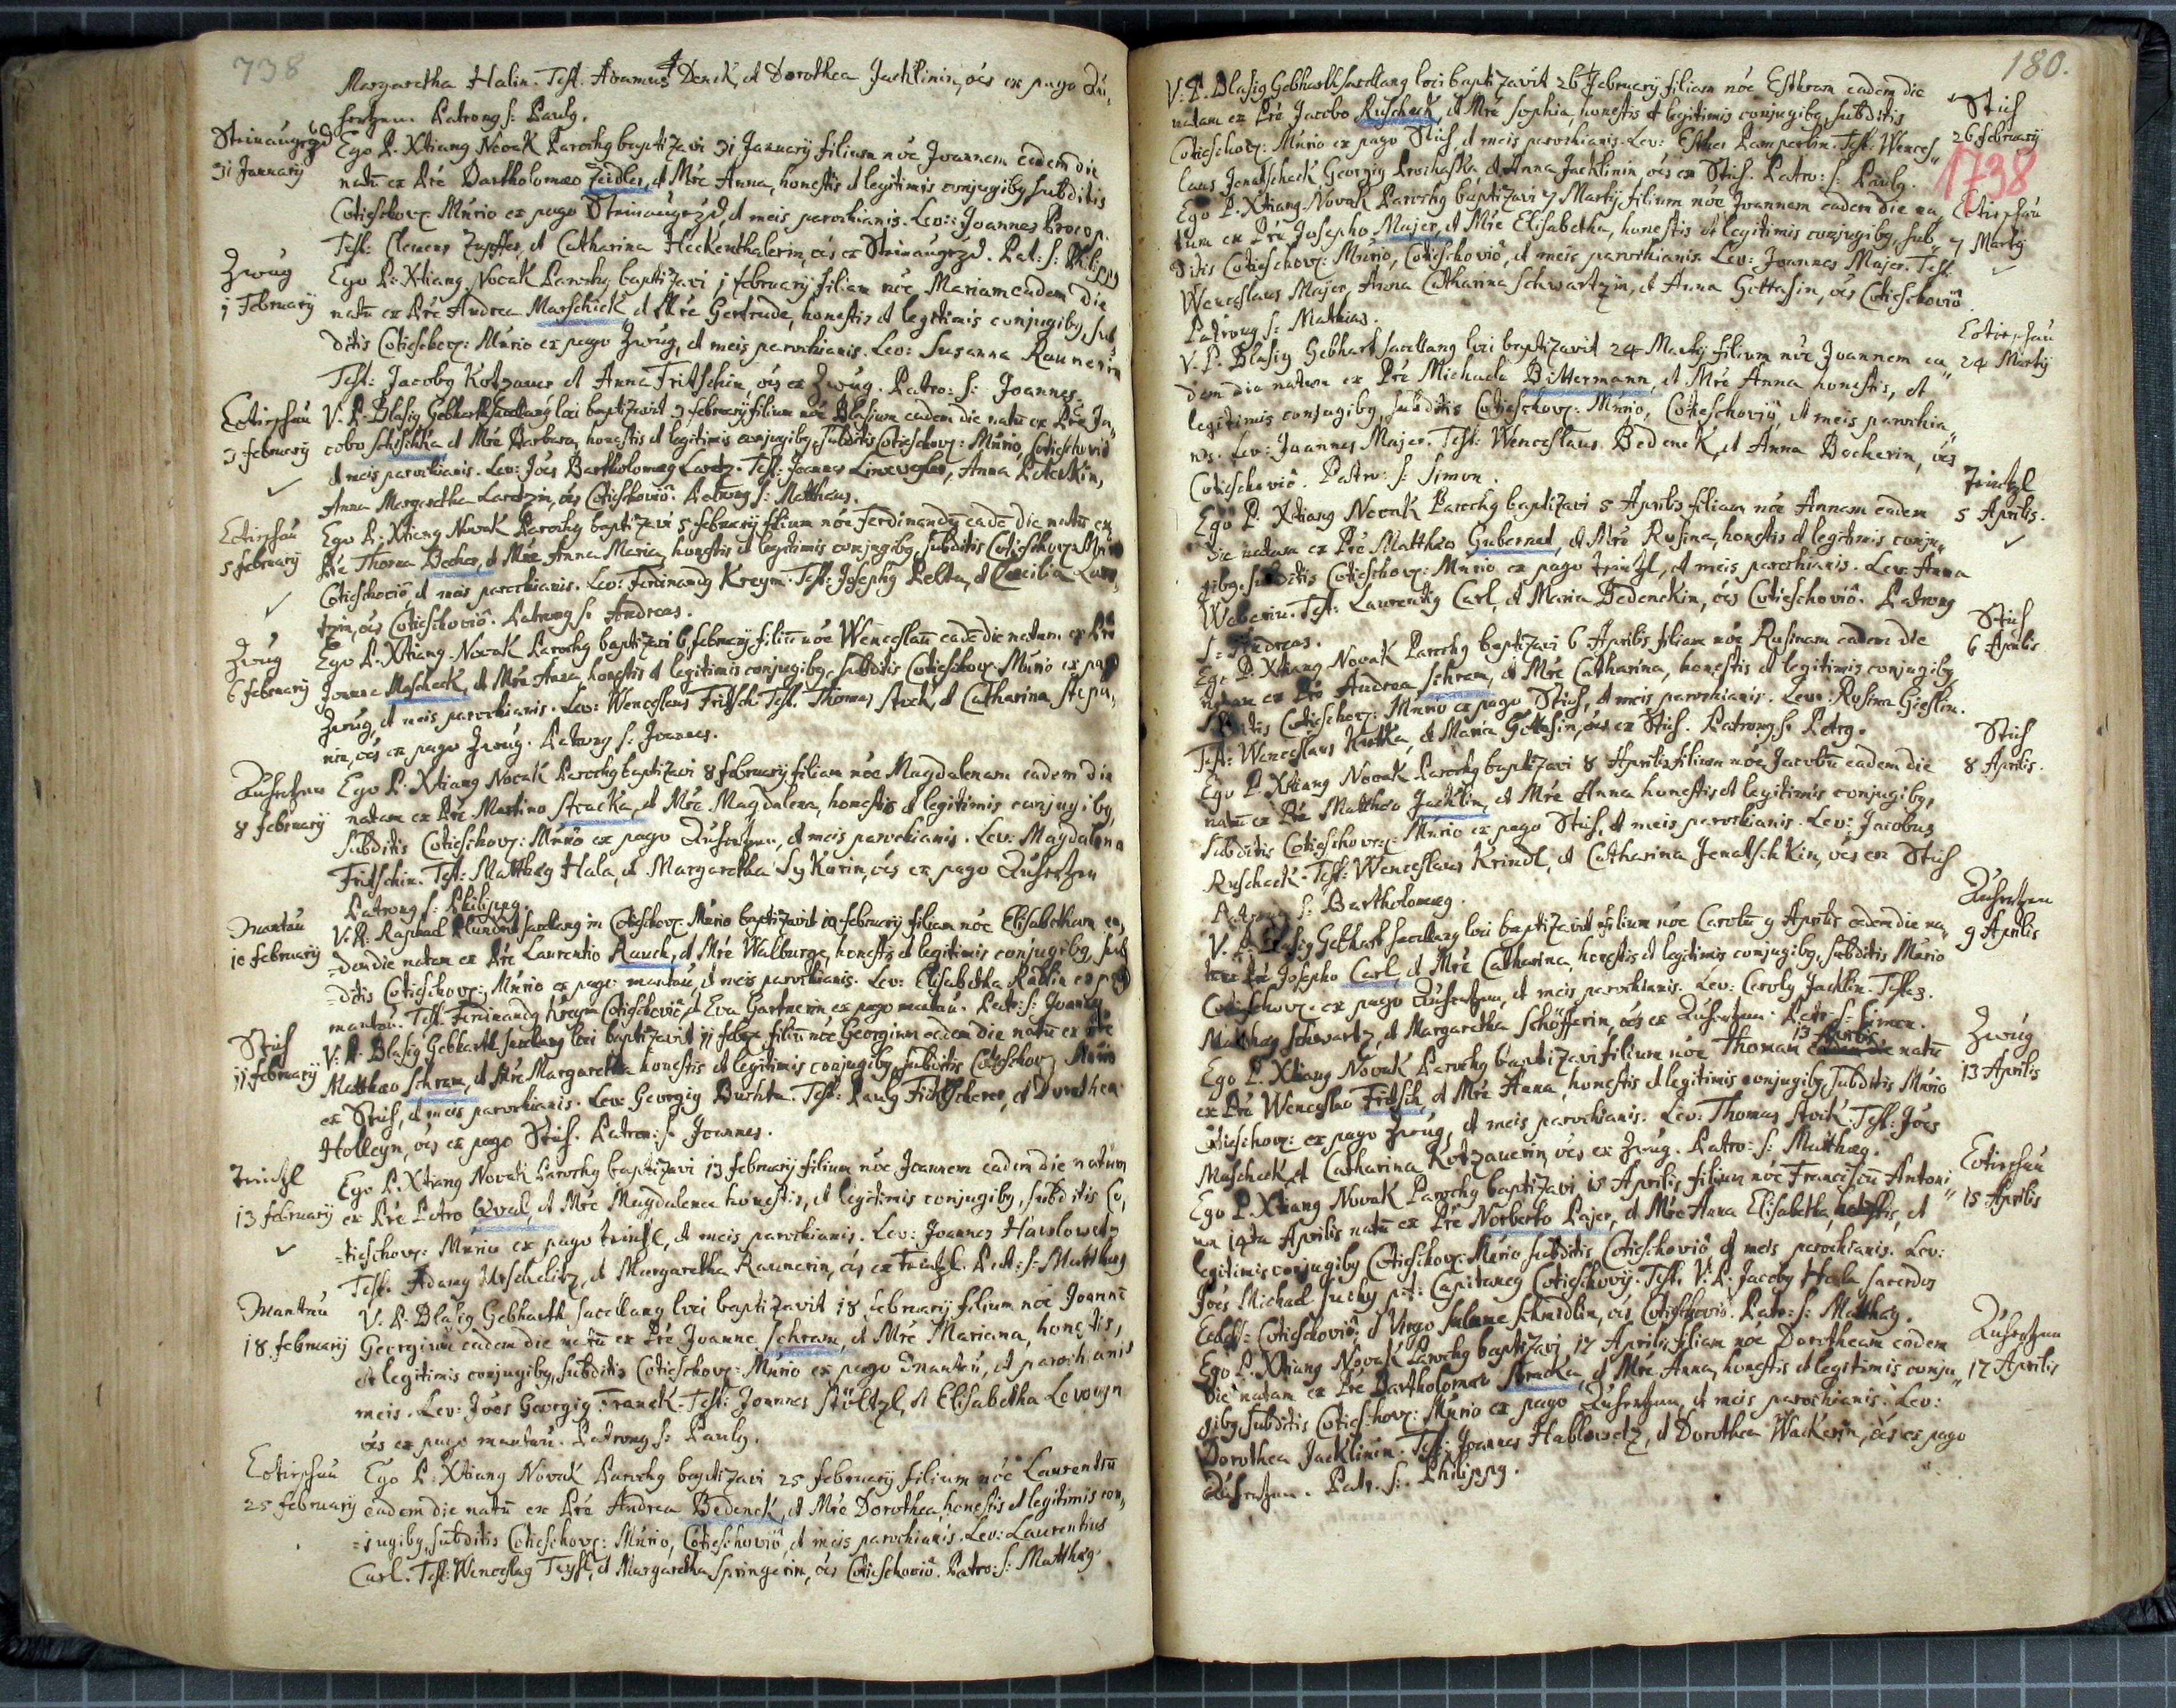 738
Margaretha Halin. Test: Adamus Denck, et Dorothea Jacklinin, oes ex pago Lu,
Patrong s: Paulg.
31 January
Ego P. Xtiang Novak Parochg baptizavi 31 January filium noe Joannem eadem die
natu ex Pre Bartholomaeo Zeidler, et Mre Anna, honestis et legitimis conjugibg, subditis
Cotieschov: Munio ex pago et meis parochianis. Lev: Joannes Procop.
Test: Clemens et Catharina Heckenthalerin, oes ex Pat: s: Philippg
Zwug
1 February
Ego P. Xtiang Novak Parochg baptizavi 1 february filiam noe Mariam eadem die
natu ex Pre Andrea Marschick et Mre Gertrude, honestis et legitimis conjugibg, sub
ditis Cotieschov: Munio ex pago Zwug, et meis parochianis. Lev: Susanna Raunerin
Test: Jacobg Kotzauer et Anna Fritschin, oes ex Zwug. Patro: s: Joannes.
Cotieschau
3 february
V. P. Blasig Gebharth Sacellang loci baptizavit 3 february filium noe Blasium eadem die natu ex Pre Ja,
cobo Schischka, et Mre Barbara, honestis et legitimis conjugibg, subditis Cotieschov: Munio, Cotieschovio
et meis parochianis. Lev: Joes Bartholomaeg Laretz. Test: Joannes Anna
Anna Margaretha Laretzin, oes Cotieschovio. Patrong s: Matthaeus.
Cotieschau
5 february
Ego P. Xtiang Novak Parochg baptizavi 5 february filium noe Ferdinandu eade die natu ex
Pre Thoma Becher, et Mre Anna Maria, honestis et legitimis conjugibg, subditis Cotieschov: Munio
Cotieschovio, et meis parochianis. Lev: Ferdinandg Kreym. Test: Josephg Pelta, et Caecilia Lare,
tzin, oes Cotieschovio. Patrong s: Andreas.
Zwug
6 february
Ego P. Xtiang Novak Parochg baptizavi 6 february filiu noe Wenceslau eade die natum ex Pre
Joanne Mascheck, et Mre Anna, honestis et legitimis conjugibg, subditis Cotieschov: Munio ex pago
Zwug, et meis parochianis. Lev: Wenceslaus Fritsch. Test: Thomas Stock, et Catharina
nin, oes ex pago Zwug. Patrong s: Joannes.
8 february
Ego P. Xtiang Novak Parochg baptizavi 8 february filiam noe Magdalenam eadem die
natam ex Pre Martino Stracka, et Mre Magdalena, honestis et legitimis conjugibg,
subditis Cotieschov: Munio ex pago et meis parochianis. Lev: Magdalena
Fritschin. Test: Matthaeg Hala, et Margaretha Sykorin, oes ex pago
Patrong s: Philippg.
Mantau
10 february
V. P. Raphael Sacellang in Cotieschov: Munio baptizavit 10 february filiam noe Elisabetham ea,
dem die natam ex Pre Laurentio Rauch, et Mre Walburga, honestis et legitimis conjugibg, sub
ditis Cotieschov: Munio ex pago mantau, et meis parochianis. Lev: Elisabetha ex pago
mantau. Test: Ferdinandg Kreym Cotieschovio, et Eva Gartnerin ex pago mantau. Patr: s: Joannes
Stich
11 february
V. P. Blasig Gebharth Sacellang loci baptizavit 11 febr: filiu noe Georgium eadem die natu ex Pre
Matthaeo Schram, et Mre Margaretha honestis et legitimis conjugibg, subditis Cotieschov: Munio
ex Stich, et meis parochianis. Lev: Georgig Buchta. Test: Paulg et Dorothea
Holleyn, oes ex pago Stich. Patron: s: Joannes.
13 february
Ego P. Xtiang Novak Parochg baptizavi 13 february filium noe Joannem eadem die natum
ex Pre Petro et Mre Magdalena honestis, et legitimis conjugibg, subditis Co,
tieschov: Munio ex pago et meis parochianis. Lev: Joannes Hawlowetz
Test: Adamg Urschelitz, et Margaretha Raunerin, oes ex Pat: s: Matthaeg
Mantau
18 february
V. P. Blasig Gebharth Sacellang loci baptizavit 18 february filium noe Joanne
Georgium eadem die natu ex Pre Joanne Schram, et Mre Mariana, honestis,
et legitimis conjugibg, subditis Cotieschov: Munio ex pago Mantau, et parochianis
meis. Lev: Joes Georgig Franck. Test: Joannes Stöltzl, et Elisabetha
oes ex pago mantau. Patrong s: Paulg.
Cotieschau
25 february
Ego P. Xtiang Novak Parochg baptizavi 25 february filium noe Laurentiu
eadem die natu ex Pre Andrea Bedenck, et Mre Dorothea, honestis et legitimis con,
jugibg, subditis Cotieschov: Munio, Cotieschovio, et meis parochianis. Lev: Laurentius
Carl. Test: Wenceslag Teysl, et Margaretha Springerin, oes Cotieschovio. Patro: s: Matthaeg.
180.
1738
Stich
26 february
V: P. Blasig Gebharth Sacellang loci baptizavit 26 february filiam noe Estheram eadem die
natam ex Pre Jacobo Ruscheck, et Mre Sophia, honestis et legitimis conjugibg, subditis
Cotieschov: Munio ex pago Stich, et meis parochianis. Lev: Esther Test: Wences,
laus Jenatscheck Georgig Prochaska et Anna Jacklinin, oes ex Stich. Patro: s: Paulg.
Cotieschau
7 Marty
Ego P. Xtiang Novak Parochg baptizavi 7 Marty filium noe Joannem eadem die na,
tum ex Pre Josepho Majer, et Mre Elisabetha, honestis et legitimis conjugibg, sub,
ditis Cotieschov: Munio, Cotieschovio, et meis parochianis. Lev: Joannes Majer. Test:
Wenceslaus Majer, Anna Catharina Schwartzin, et Anna oes Cotieschovio
Patrong s: Mathias.
Cotieschau
24 Marty
V. P. Blasig Gebhart Sacellang loci baptizavit 24 Marty filium noe Joannem ea,
dem die natum ex Pre Michaele Bittermann, et Mre Anna honestis, et
legitimis conjugibg, subditis Cotieschov: Munio, Cotieschovy, et meis parochia,
nis. Lev: Joannes Majer. Test: Wenceslaus Bedenck, et Anna Becherin, oes
Cotieschovio. Patro: s: Simon.
5 Aprilis.
Ego P. Xtiang Novak Parochg baptizavi 5 Aprilis filiam noe Annam eadem
die natam ex Pre Matthaeo Gubernat, et Mre Rosina, honestis et legitimis conju,
gibg, subditis Cotieschov: Munio ex pago et meis parochianis. Lev: Anna
Weberin. Test: Laurentig Carl, et Maria Bedenckin, oes Cotieschovio. Patrong
s: Andreas.
Stich
6 Aprilis
Ego P. Xtiang Novak Parochg baptizavi 6 Aprilis filiam noe Rosinam eadem die
natam ex Pre Andrea Schram, et Mre Catharina, honestis et legitimis conjugibg,
subditis Cotieschov: Munio ex pago Stich, et meis parochianis. Lev: Rosina
Test: Wenceslaus et Maria oes ex Stich. Patrong s: Petrg.
Stich
8 Aprilis.
Ego P. Xtiang Novak Parochg baptizavi 8 Aprilis filium noe Jacobu eadem die
natu ex Pre Matthaeo Jacklin, et Mre Anna honestis et legitimis conjugibg,
subditis Cotieschov: Munio ex pago Stich, et meis parochianis. Lev: Jacobus
Ruscheck. Test: Wenceslaus Krindl, et Catharina Jenatschkin, oes ex Stich
Patrong s: Bartholomaeg.
9 Aprilis
V. P. Blasig Gebhart Sacellang loci baptizavit filium noe Carolu 9 Aprilis eadem die na,
tum ex Pre Josepho Carl, et Mre Catharina, honestis et legitimis conjugibg, subditis Munio
Cotieschov: ex pago et meis parochianis. Lev: Carolg Jacklin. Testes.
Matthaeg Schwartz, et Margaretha Schöfferin, oes ex Patr: s: Simon.
Zwug
13 Aprilis
13 Aprilis
Ego P. Xtiang Novak Parochg baptizavi filium noe Thomam eadem die natu
ex Pre Wenceslao Fritsch, et Mre Anna, honestis et legitimis conjugibg, subditis Munio
Cotieschov: ex pago Zwug, et meis parochianis. Lev: Thomas Stock. Test: Joes
Mascheck, et Catharina Kotzauerin, oes ex Zwug. Patro: s: Matthaeg.
Cotieschau
15 Aprilis
Ego P. Xtiang Novak Parochg baptizavi 15 Aprilis filium noe Franciscu Antoni
um 14ta Aprilis natu ex Pre Norberto Pajer, et Mre Anna Elisabetha, honestis, et
legitimis conjugibg Cotieschov: Munio subditis Cotieschovio et meis parochianis. Lev:
Joes Michael Suchy Capitaneg Cotieschovy. Test: V: P. Jacobg Hala sacerdos
Cotieschovio, et Virgo Schmidlin, oes Cotieschovio. Patr: s: Matthaeg.
17 Aprilis
Ego P. Xtiang Novak Parochg baptizavi 17 Aprilis filiam noe Dorotheam eadem
die natam ex Pre Bartholomaeo Stracka, et Mre Anna, honestis et legitimis conju,
gibg, subditis Cotieschov: Munio ex pago et meis parochianis. Lev:
Dorothea Jacklinin. Test: Joannes Hablowetz, et Dorothea Wackerin, oes ex pago
Patr. s: Philippg.